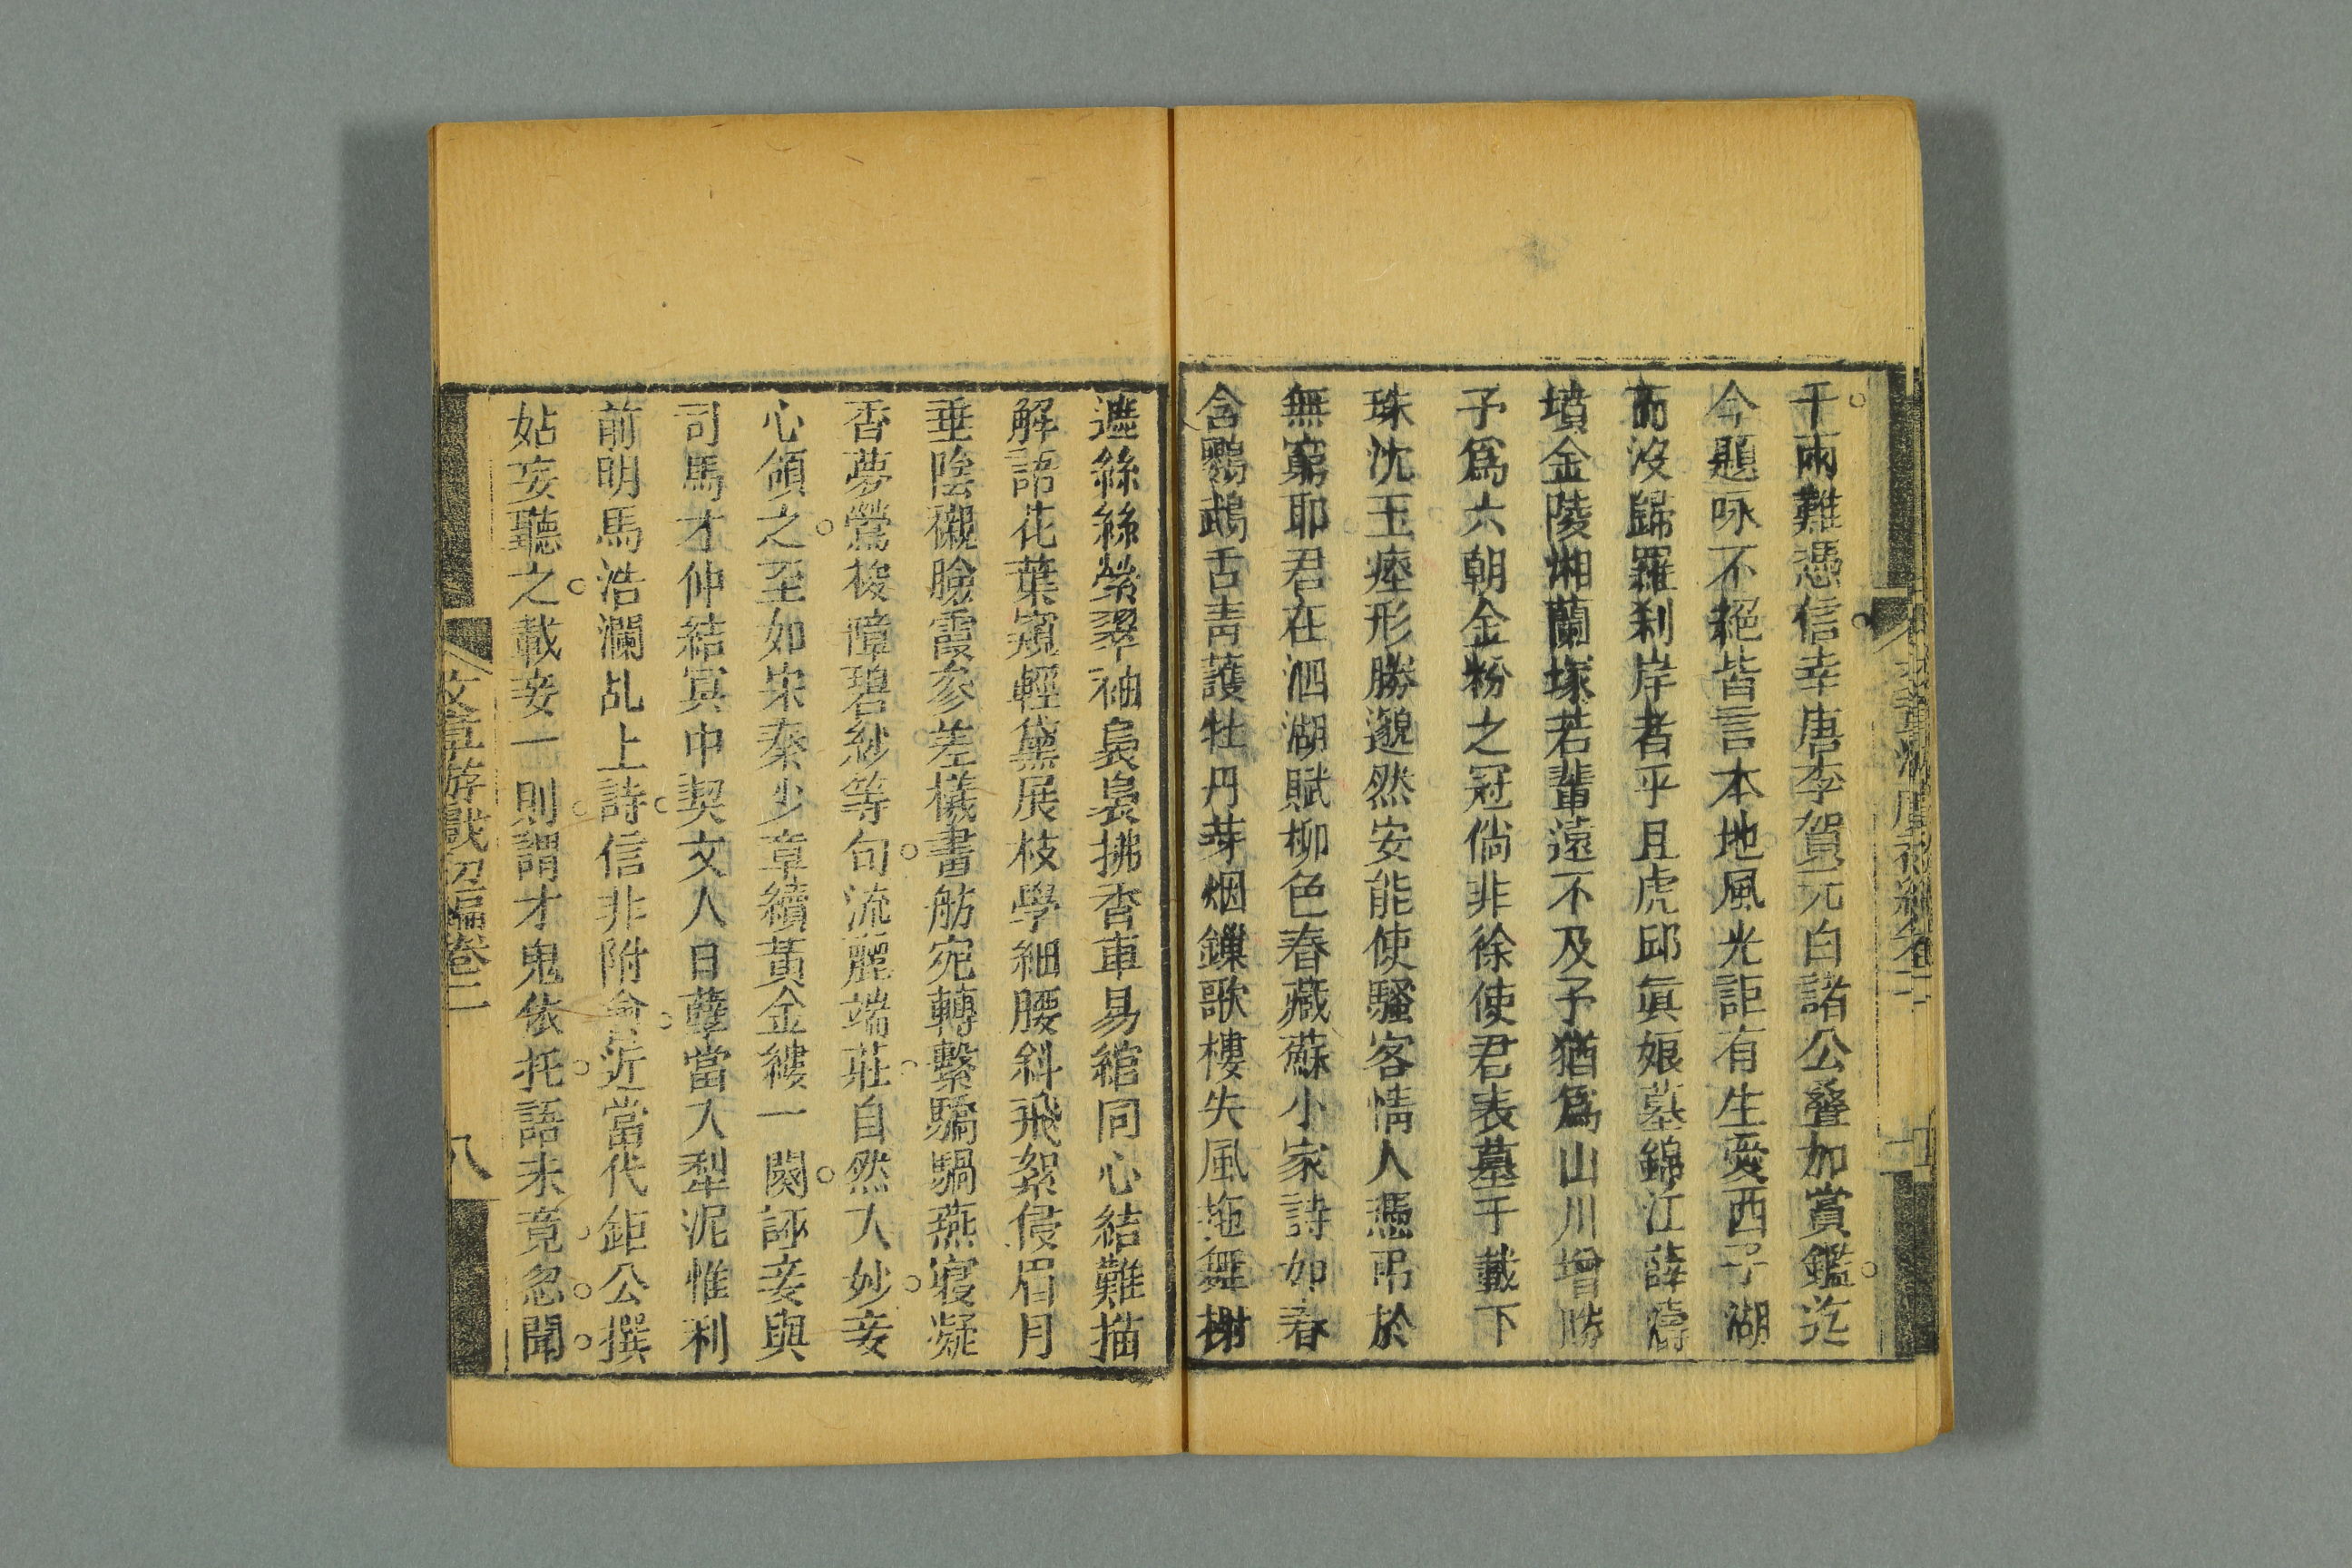 千兩難憑信幸唐李賀元白諸公疊加賞鑑迄
今題咏不絕皆言本地風光詎有生愛西子湖
而沒歸羅刹岸者乎且虎邱眞娘墓錦江薛濤
墳金陵湘蘭塚若輩遠不及予猶爲山川增勝
予爲六朝金粉之冠倘非徐使君表墓千載下
珠沈玉瘞形勝邈然安能使騷客情人憑弔於
無窮耶君在泗湖賦柳色春藏蘇小家詩如春
含鸚鵡舌靑護牡丹芽烟鏁歌樓失風拖舞榭
遮絲絲縈翠袖裊裊拂香車易綰同心結難描
解語花葉窺輕黛展枝學細腰斜飛絮侵眉月
垂陰襯臉霞參差橫畫舫宛轉繫驕騧燕寢凝
香夢鶯梭障碧紗等句流麗端莊自然入妙妾
心傾之至如宋秦少章續黃金縷一闋誣妾與
司馬才仲結寞中契文人口孽當入犁泥惟利
前明馬浩瀾乩上詩信非附會近當代鉅公撰
姑妄聽之載妾一則謂才鬼依托語未竟忽聞
文章游戲初編卷二
八